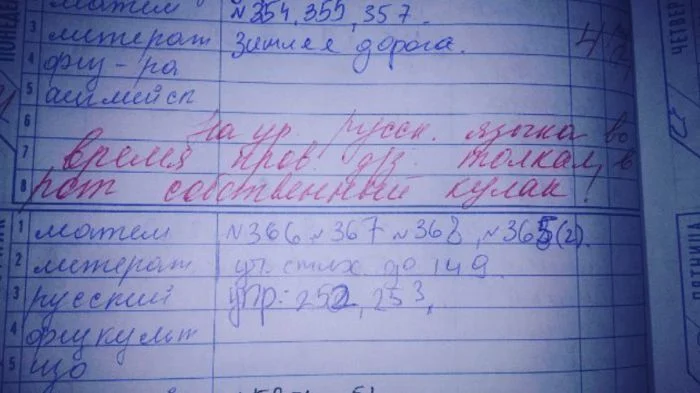 ПОНЕДЕ
матем №354, 355, 357.
3 литерат Зимняя дорога.
4 физ-ра
5 английск
6 На ур. русск. языка во
7 время пров. д/з толкал в
8 рот собственный кулак!
1 матем №366, №367 №368, №365(2).
2 литерат уч. стих до 149
3 русский упр: 252, 253,
4 физкульт
5 изо
ЧЕТВЕР
ПЯТНИЦА